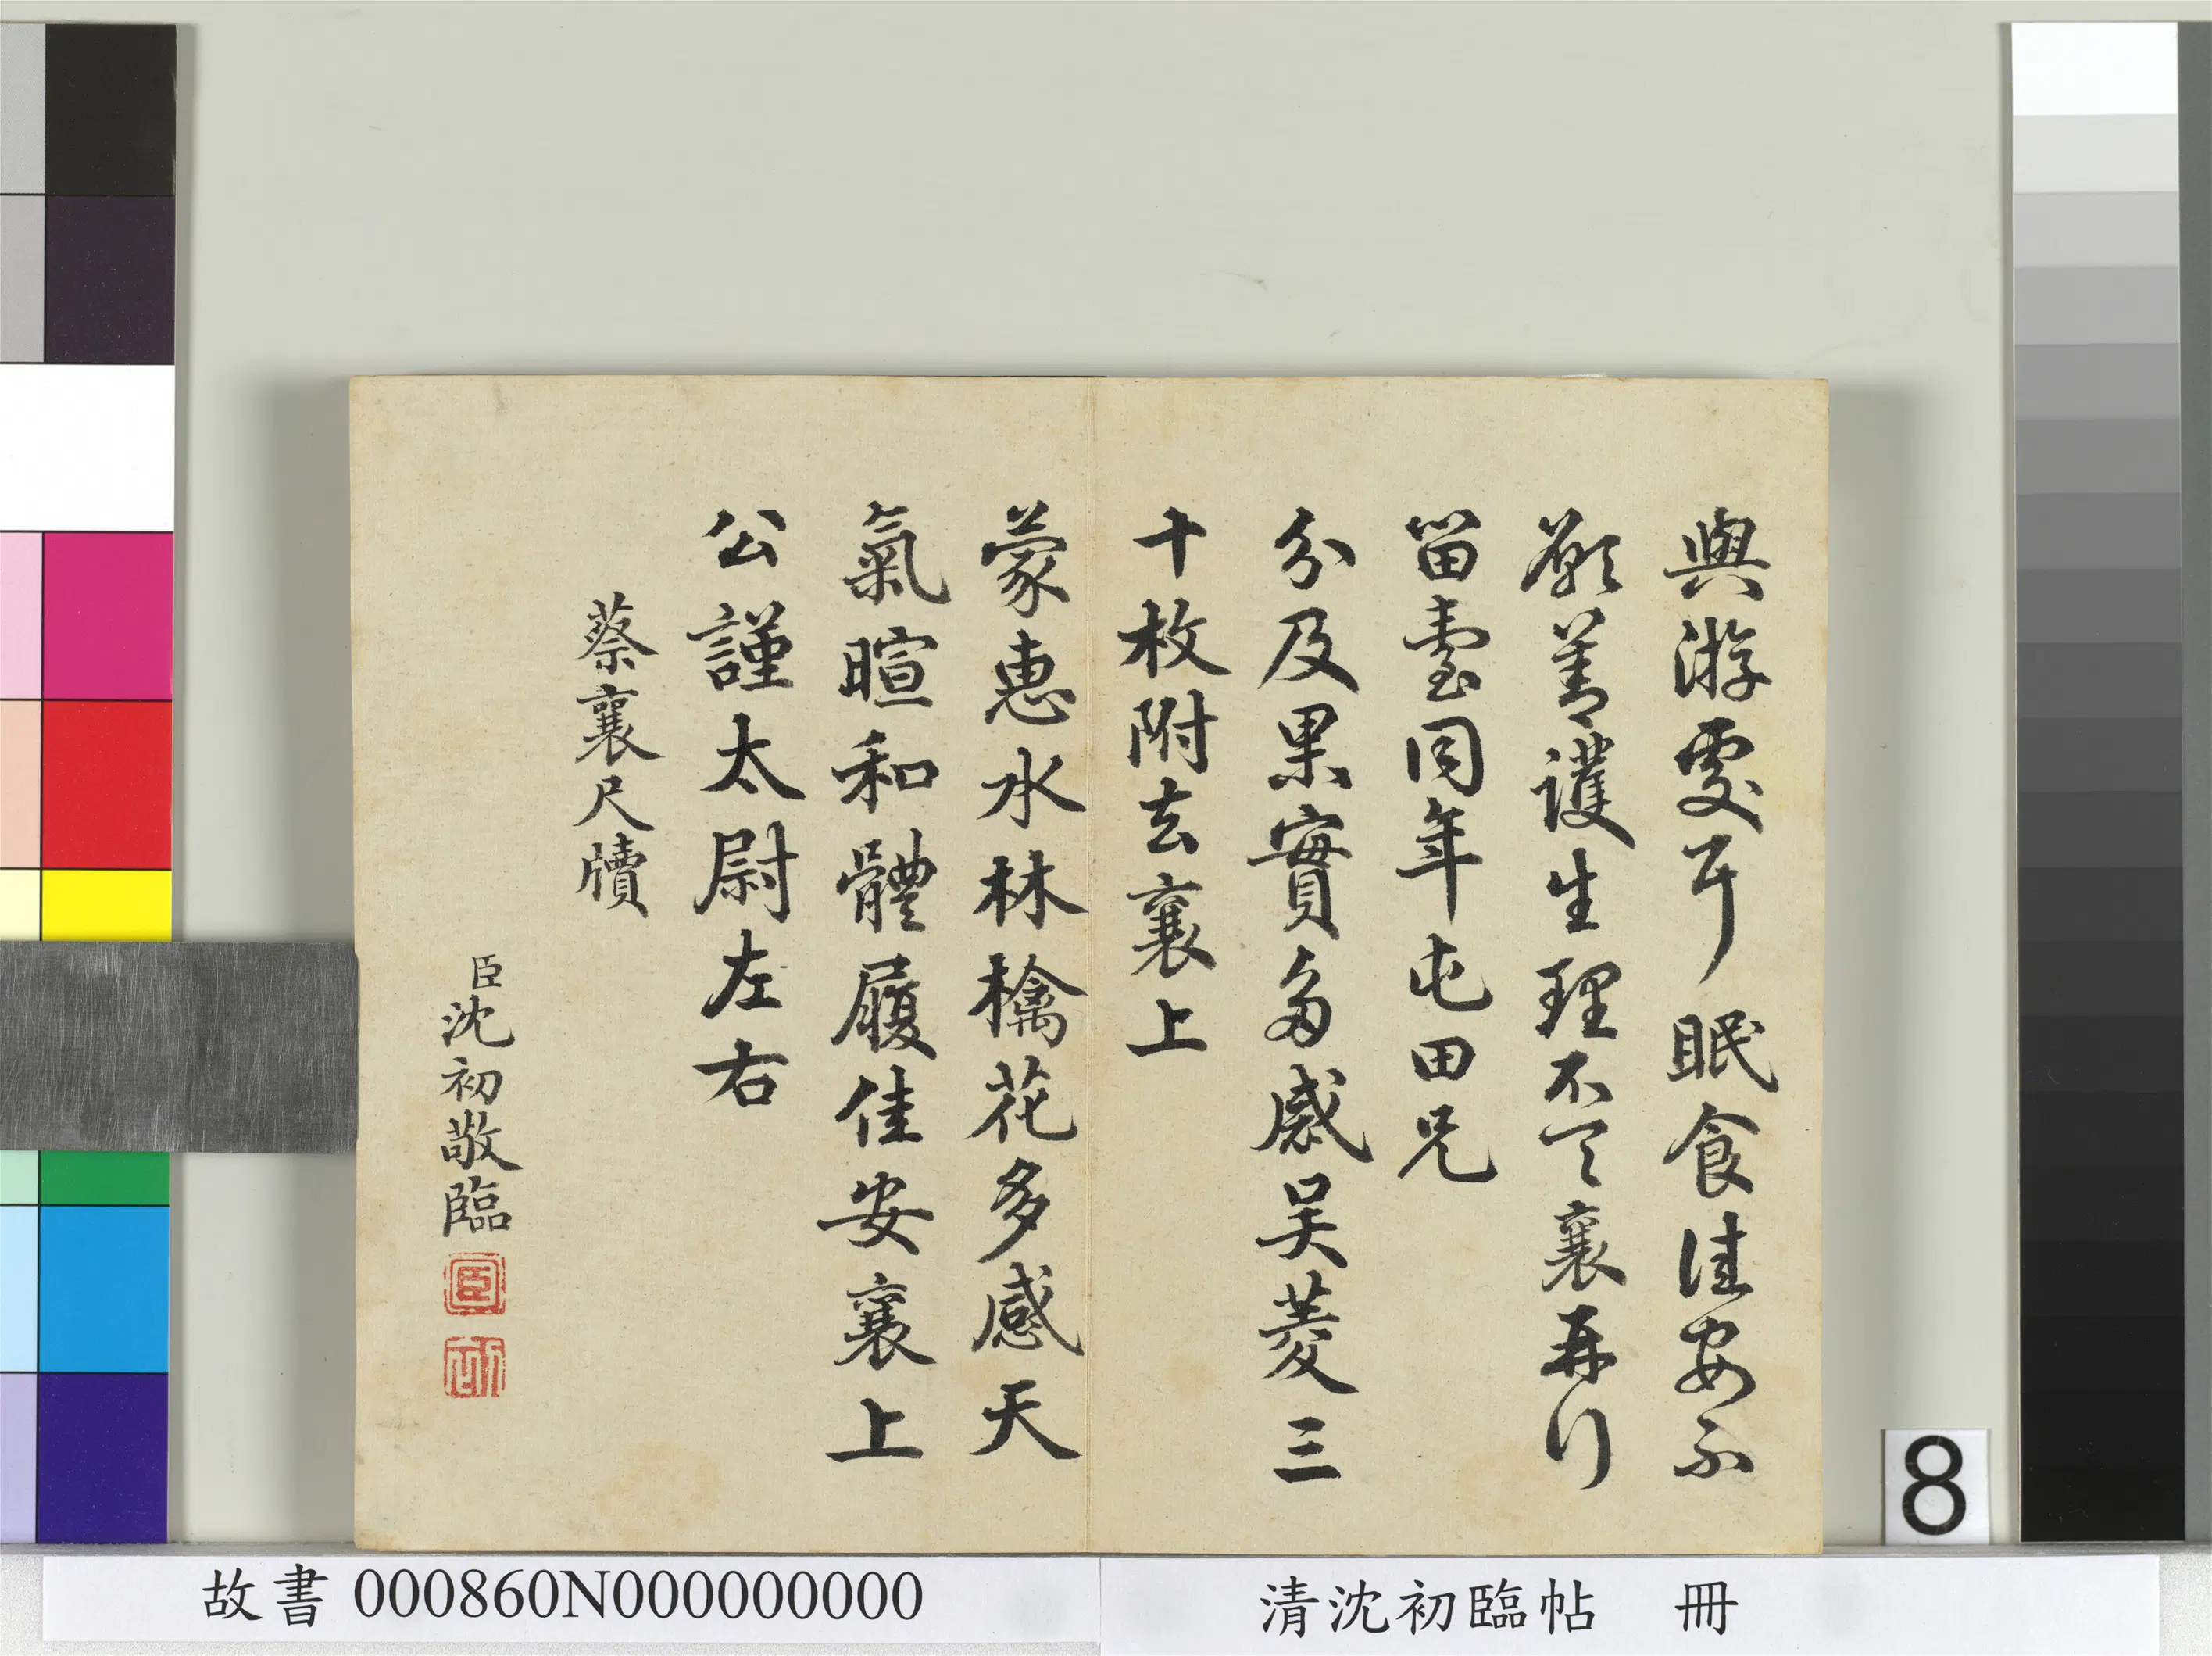 與游處耳眠食佳安不
願善護生理不一一襄再行
留臺同年屯田兄
分及果實多感吴菱三
十枚附去襄上
蒙惠水林檎花多感天
氣暄和體履佳安襄上
公謹太尉左右
蔡襄尺牘
臣沈初敬臨
8
故書 000860N000000000
清沈初臨帖 冊